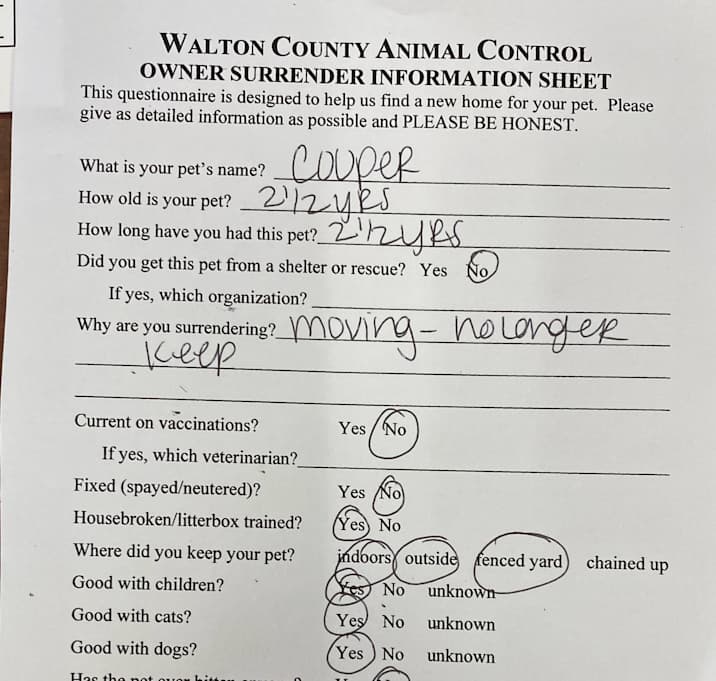 WALTON COUNTY ANIMAL CONTROL
OWNER SURRENDER INFORMATION SHEET
This questionnaire is designed to help us find a new home for your pet. Please
give as detailed information as possible and PLEASE BE HONEST.
What is your pet's name? Couper
How old is your pet? 2 1/2 yrs
How long have you had this pet? 2 1/2 yrs
Did you get this pet from a shelter or rescue? Yes No
If yes, which organization?
Why are you surrendering? moving - no longer
keep
Current on vaccinations? Yes No
If yes, which veterinarian?
Fixed (spayed/neutered)? Yes No
Housebroken/litterbox trained? Yes No
Where did you keep your pet? indoors outside fenced yard chained up
Good with children? Yes No unknown
Good with cats? Yes No unknown
Good with dogs? Yes No unknown
Has the pet ever bitten